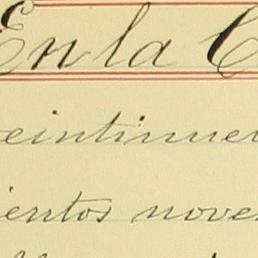 En la C
eintinue
ientos nove